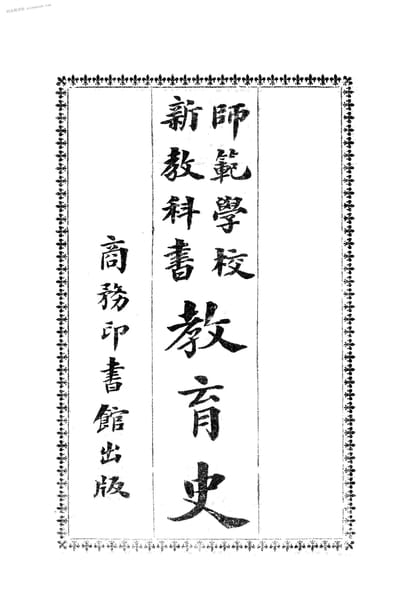 師範學校
新教科書
教育史
商務印書館出版